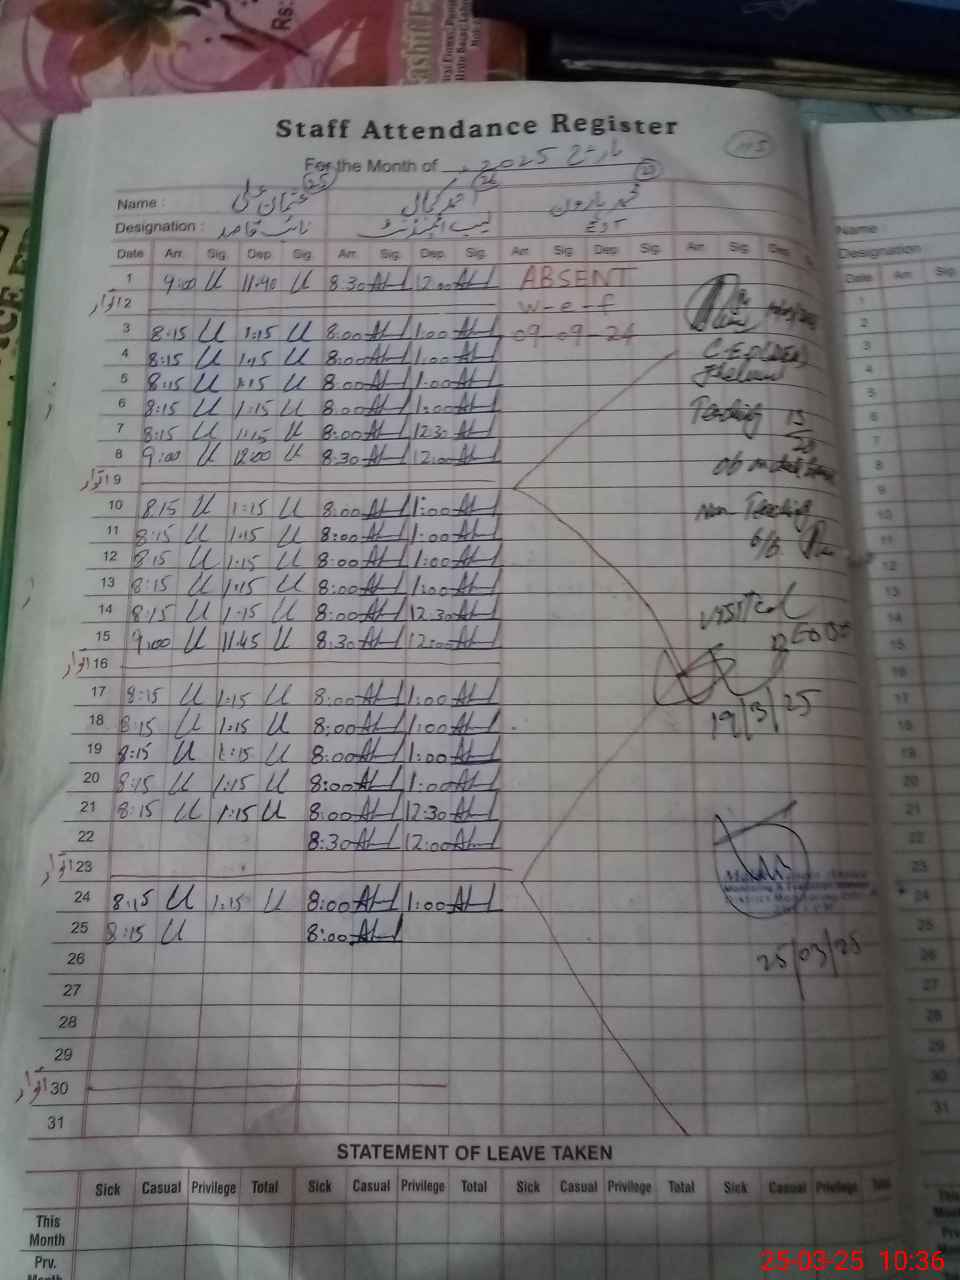 Rs:
Staff Attendance Register
115
For the Month of مارچ 2025
Name : عثمان علی 25 احمد کمال 26 محمد ہارون 27
Designation : نائب قاصد لیب اٹینڈنٹ
Date Arr. Sig. Dep. Sig. Arr. Sig. Dep. Sig. Arr. Sig. Dep. Sig. Arr. Sig. Dep.
1 9:00 U 11:40 U 8.30 12:00 ABSENT
اتوار 2 w-e-f
3 8:15 U 1:15 U 8:00 1:00 09-09-24
4 8:15 U 1:15 U 8:00 1:00
5 8:15 U 1:15 U 8:00 1:00
6 8:15 U 1:15 U 8:00 1:00
7 8:15 U 1:15 U 8:00 12:30
8 9:00 U 12:00 U 8:30 12:00
اتوار 9
10 8:15 U 1:15 U 8:00 1:00
11 8:15 U 1:15 U 8:00 1:00
12 8:15 U 1:15 U 8:00 1:00
13 8:15 U 1:15 U 8:00 1:00
14 8:15 U 1:15 U 8:00 12:30
15 9:00 U 11:45 U 8:30 12:00
اتوار 16
17 8:15 U 1:15 U 8:00 1:00
18 8:15 U 1:15 U 8:00 1:00
19 8:15 U 1:15 U 8:00 1:00
20 8:15 U 1:15 U 8:00 1:00
21 8:15 U 1:15 U 8:00 12:30
22 8:30 12:00
اتوار 23
24 8:15 U 1:15 U 8:00 1:00
25 8:15 U 8:00
26
27
28
29
اتوار 30
31
CEO (DEA)
Jhelum
Teaching 15
20
Non Teaching
6/8
Visited
19/3/25
25/03/25
STATEMENT OF LEAVE TAKEN
Sick Casual Privilege Total Sick Casual Privilege Total Sick Casual Privilege Total Sick Casual Privilege Total
This Month
Prv. Month
Name :
Designation
Date Arr. Sig.
1
2
3
4
5
6
7
8
9
10
11
12
13
14
15
16
17
18
19
20
21
22
23
24
25
26
27
28
29
30
31
25-03-25 10:36